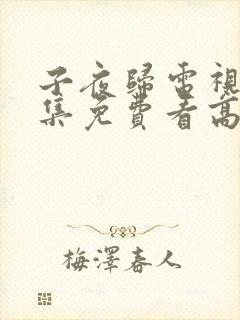 子夜歸電視
集免費看高
梅澤春人